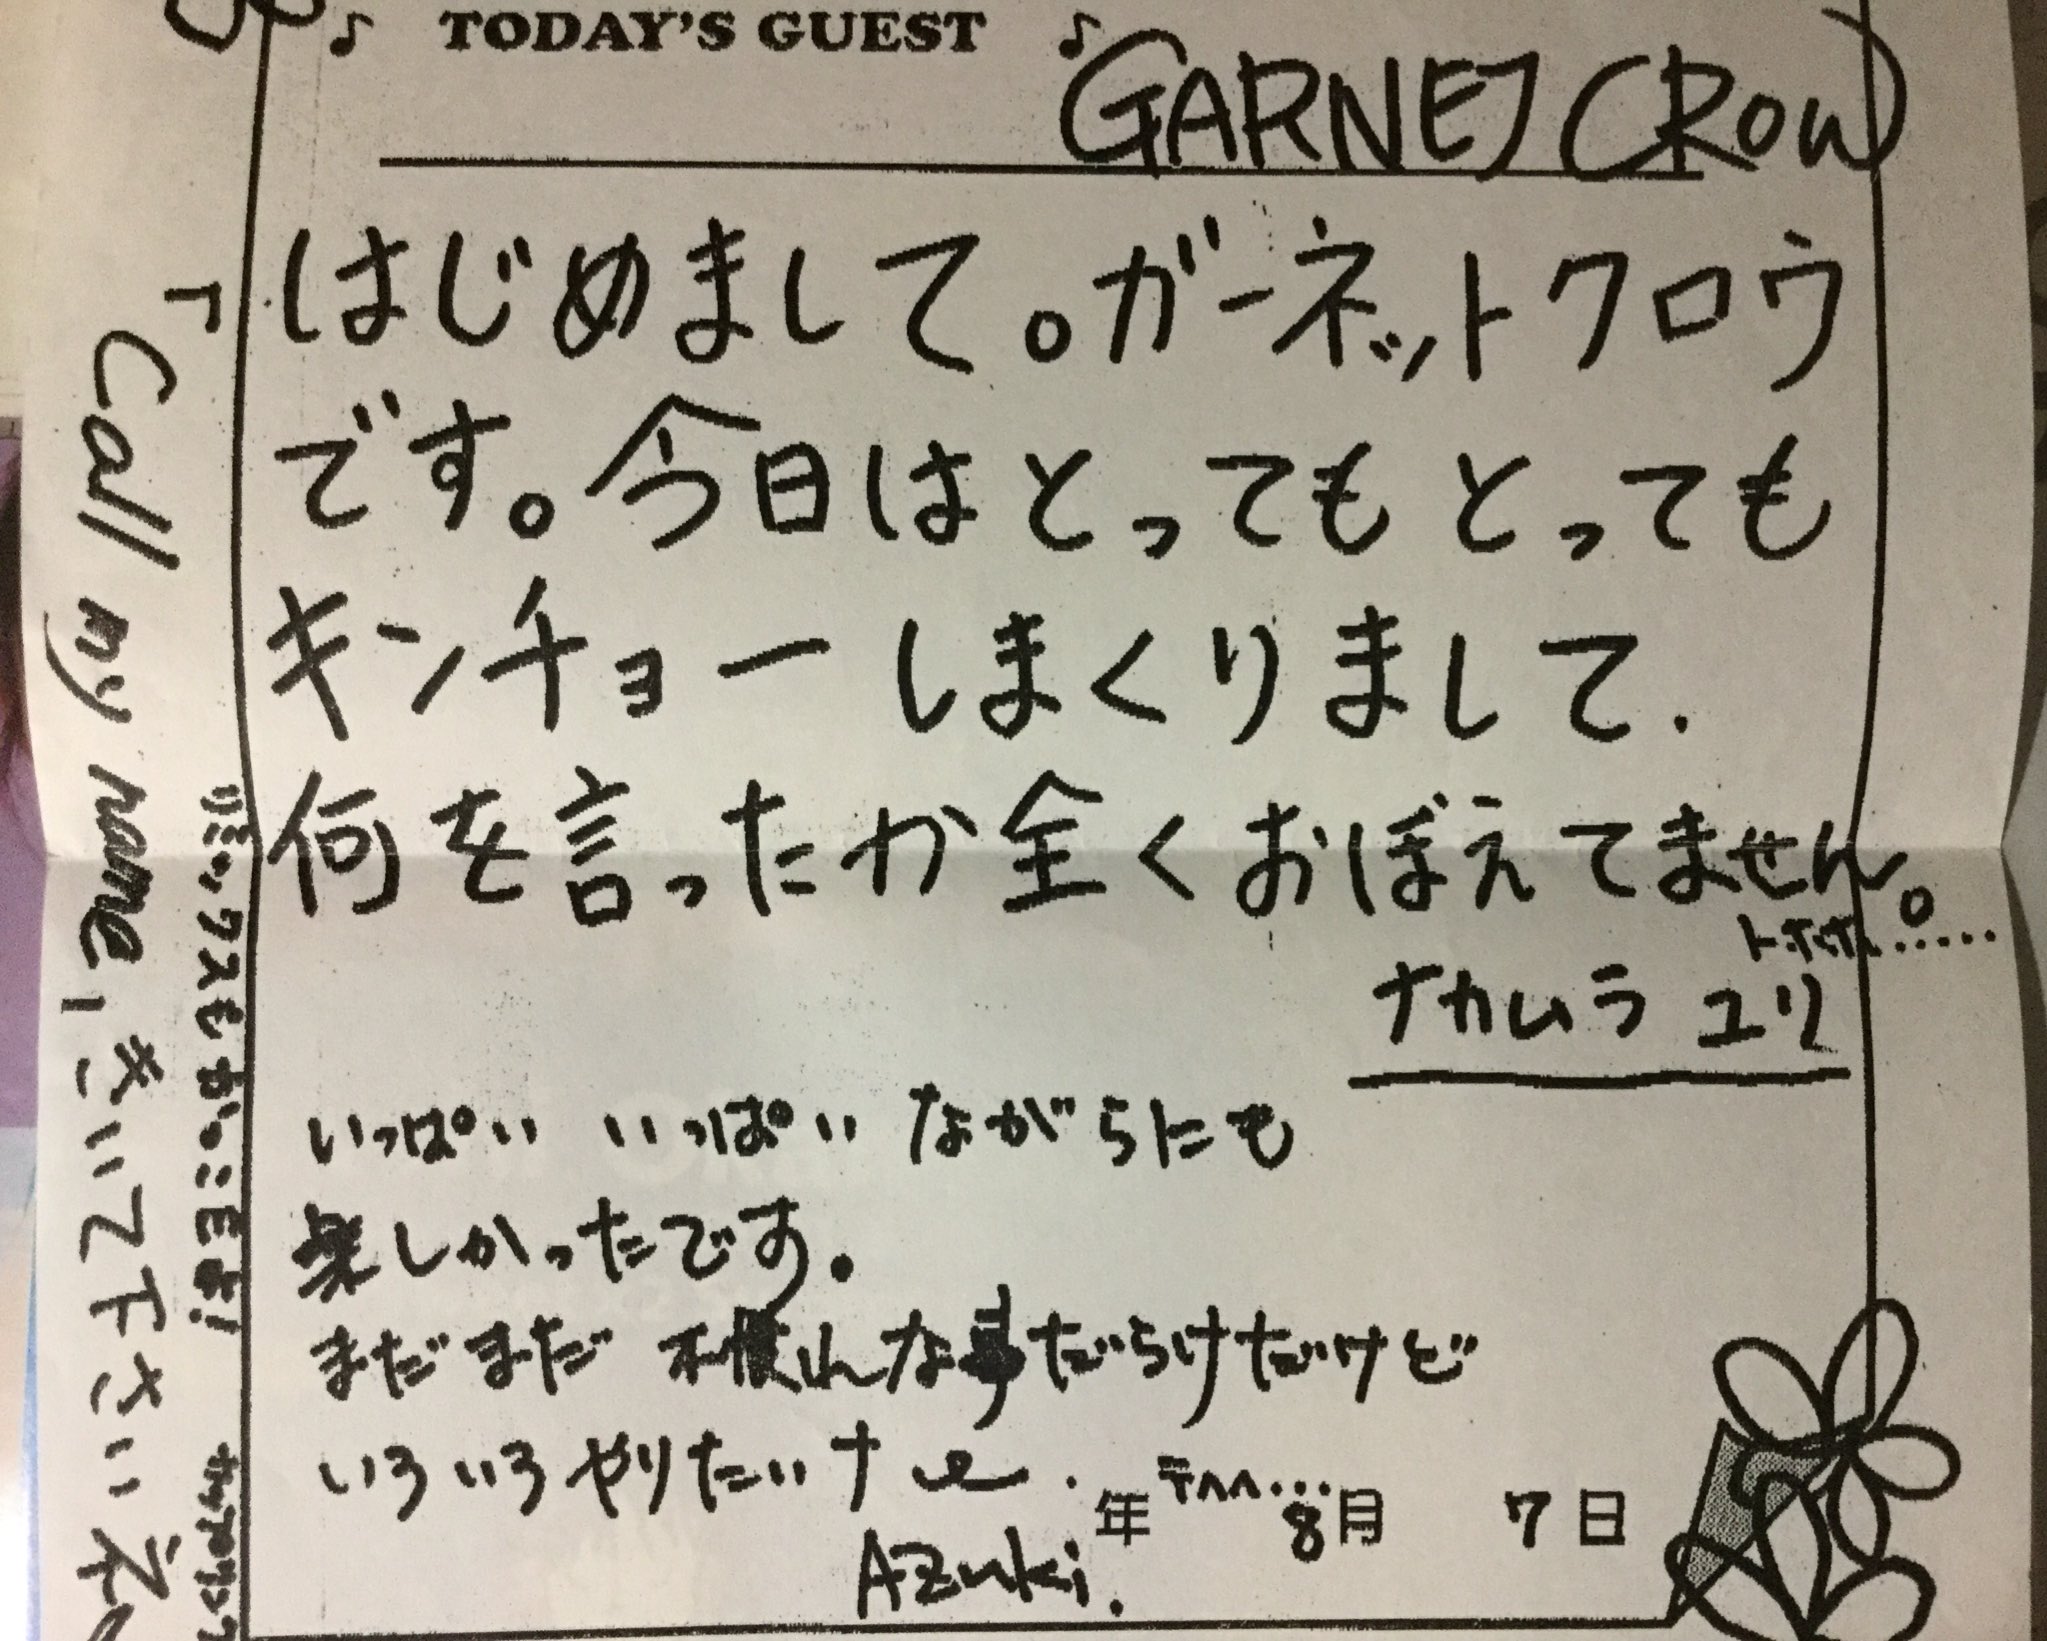 ♪ TODAY'S GUEST ♪
GARNET CROW
はじめまして。ガーネットクロウ
です。今日はとってもとっても
キンチョーしまくりまして.
何を言ったか全くおぼえてません。
トホホ.....
ナカムラ ユリ
いっぱい いっぱい ながらにも
楽しかったです。
まだまだ 不慣れな事だらけだけど
いろいろやりたいナ
テヘヘ...
年 8月 7日
AZuki.
「Call my name」きいて下さいネ。
リミックスもかっこEよ!